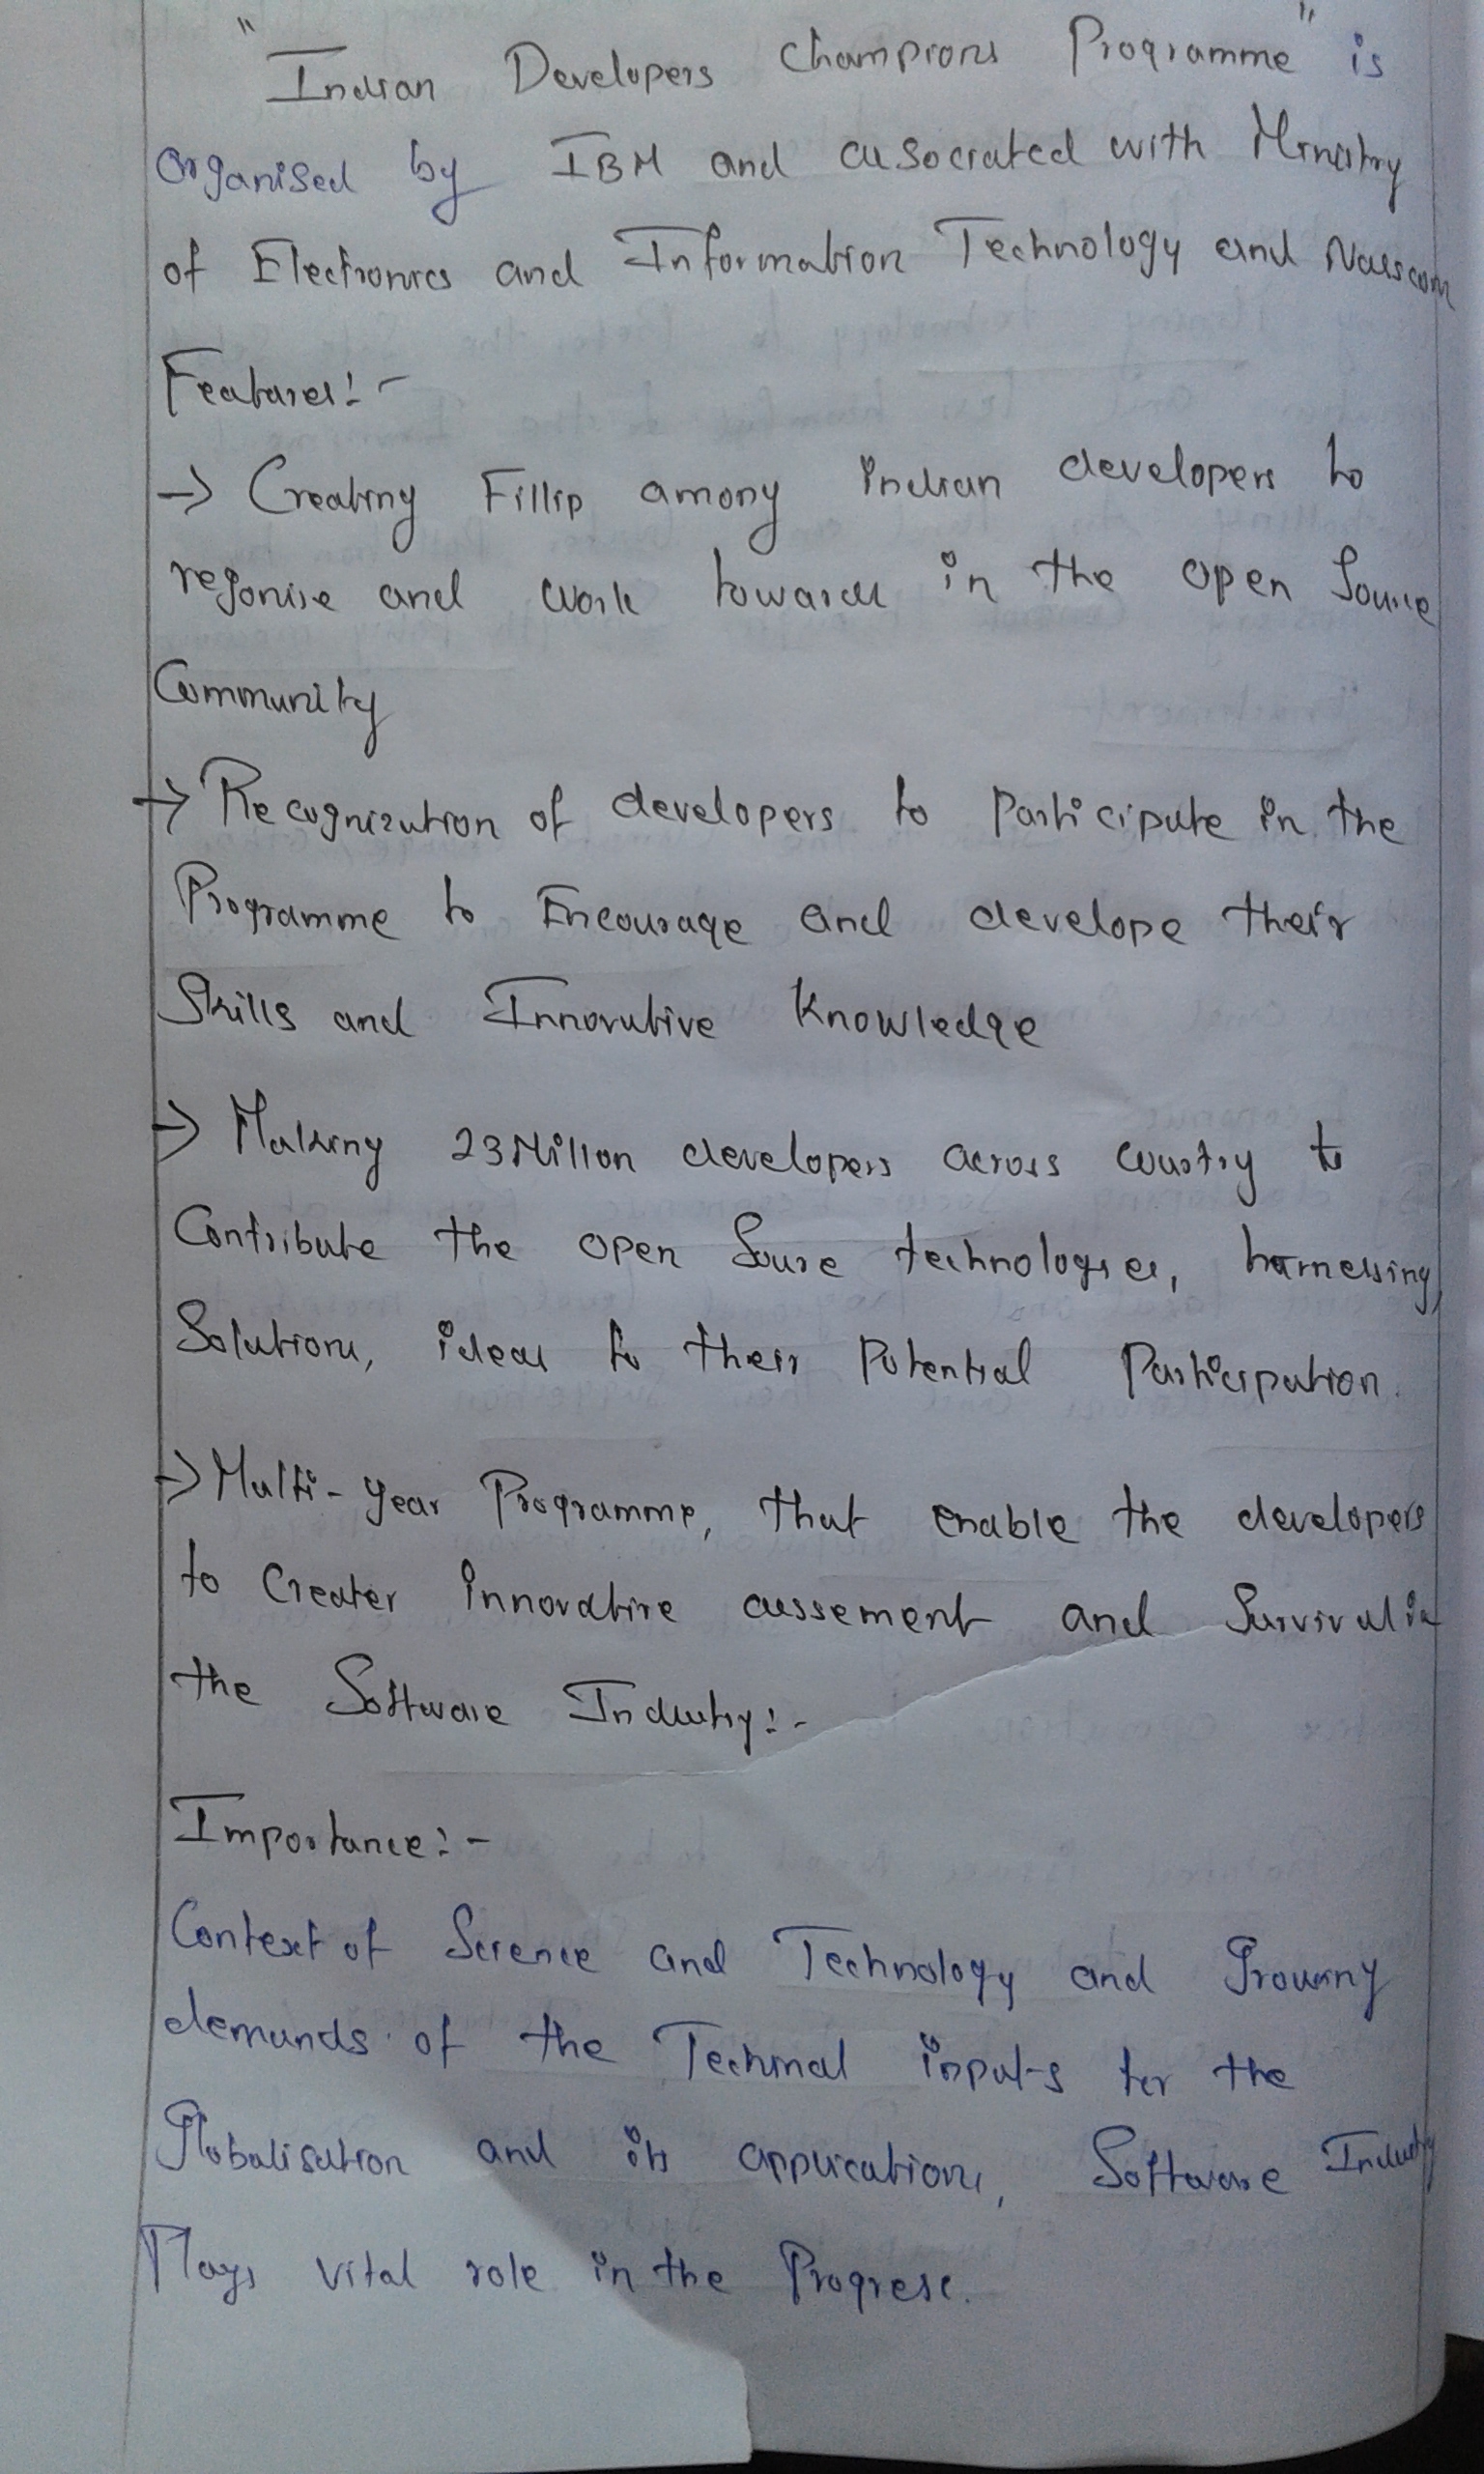 "Indian Developers Champions Programme" is
Organised by IBM and associated with Ministry
of Electronics and Information Technology and Nasscom
Features:-
→ Creating Fillip among indian developers to
regonise and work towards in the open Source
Community
→ Recognization of developers to Participate in the
Programme to Encourage and develope their
Skills and Innovative Knowledge
→ Making 23 Million developers across country to
Contribute the open Soure technologies, harnessing,
Solutions, ideas to their Potential Participation.
→ Multi-year Programme, that enable the developers
to Creater innovative assement and Survival in
the Software Industry:-
Importance:-
Context of Science and Technology and Growing
demands of the Techinal inputs for the
Globalisation and its applications, Software Industry
Plays vital role in the Progress.